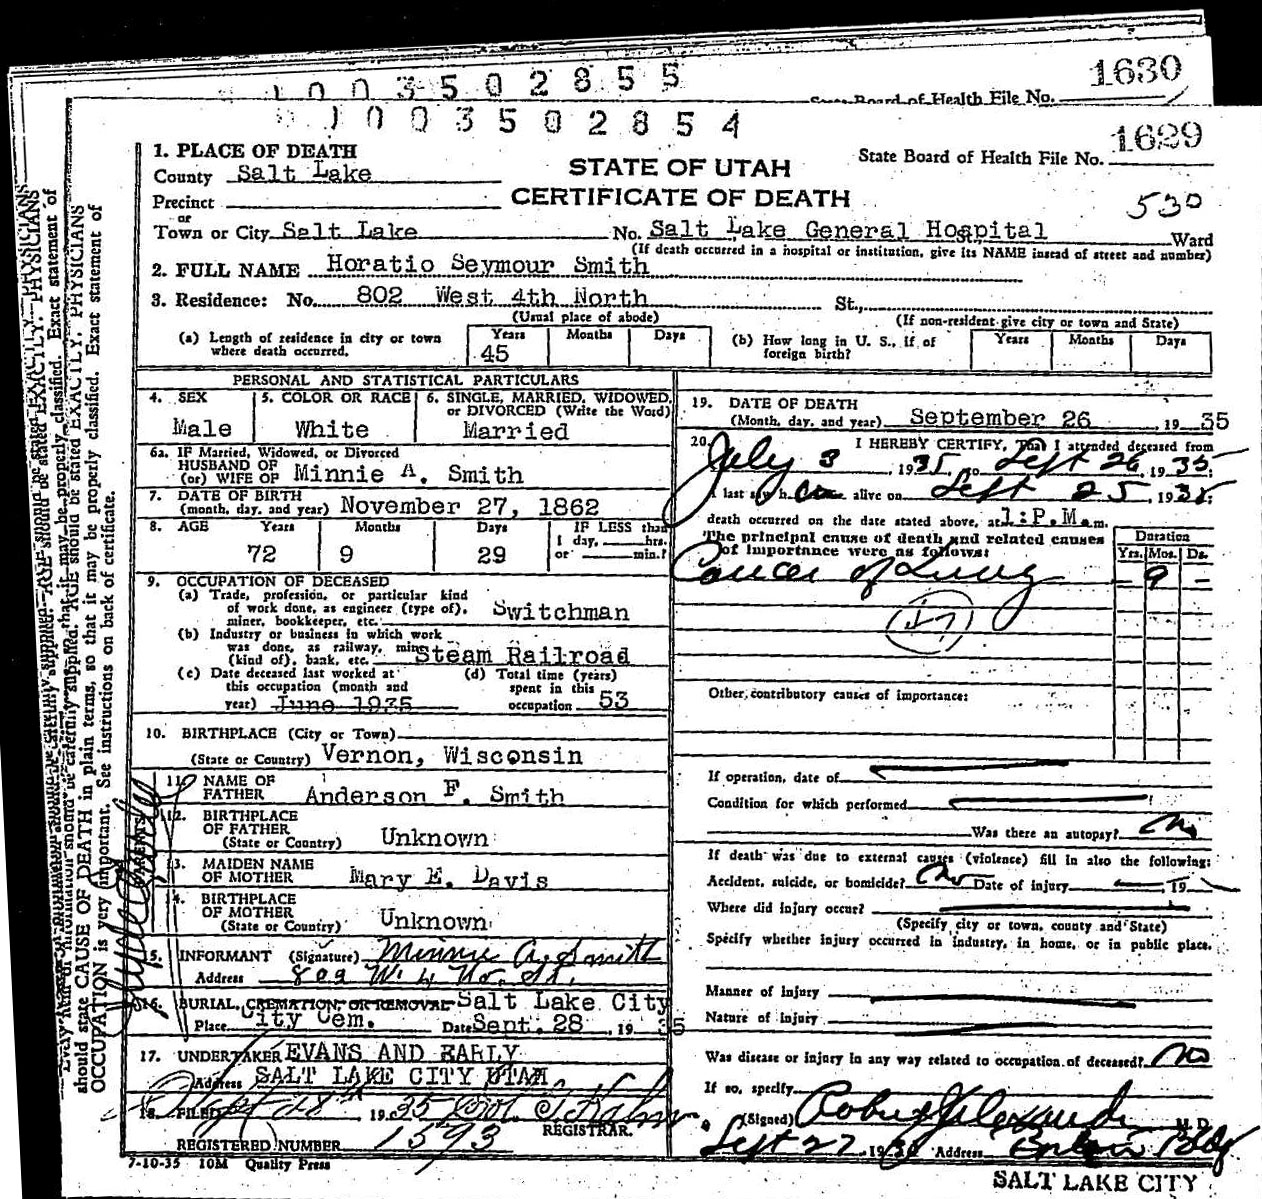 1003502855
1630
State Board of Health File No.
1003502854
1629
State Board of Health File No.
530
1. PLACE OF DEATH
County Salt Lake
STATE OF UTAH
CERTIFICATE OF DEATH
Precinct
or
Town or City Salt Lake No. Salt Lake General Hospital Ward
(If death occurred in a hospital or institution, give its NAME instead of street and number)
2. FULL NAME Horatio Seymour Smith
3. Residence: No. 802 West 4th North St.,
(Usual place of abode) (If non-resident give city or town and State)
(a) Length of residence in city or town where death occurred. Years 45 Months Days
(b) How long in U. S., if of foreign birth? Years Months Days
PERSONAL AND STATISTICAL PARTICULARS
4. SEX Male
5. COLOR OR RACE White
6. SINGLE, MARRIED, WIDOWED, or DIVORCED (Write the Word) Married
6a. IF Married, Widowed, or Divorced
HUSBAND OF
(or) WIFE OF Minnie A. Smith
7. DATE OF BIRTH
(month, day, and year) November 27, 1862
8. AGE Years Months Days IF LESS than
1 day, hrs.
or min.?
72 9 29
9. OCCUPATION OF DECEASED
(a) Trade, profession, or particular kind
of work done, as engineer (type of),
miner, bookkeeper, etc. Switchman
(b) Industry or business in which work
was done, as railway, mine
(kind of), bank, etc. Steam Railroad
(c) Date deceased last worked at
this occupation (month and
year) June 1935
(d) Total time (years)
spent in this
occupation 53
10. BIRTHPLACE (City or Town)
(State or Country) Vernon, Wisconsin
PARENTS
11. NAME OF
FATHER Anderson F. Smith
12. BIRTHPLACE
OF FATHER
(State or Country) Unknown
13. MAIDEN NAME
OF MOTHER Mary E. Davis
14. BIRTHPLACE
OF MOTHER
(State or Country) Unknown
15. INFORMANT (Signature) Minnie A. Smith
Address 802 W. 4 No. St.
16. BURIAL, CREMATION, OR REMOVAL Salt Lake City
Place City Cem. Date Sept. 28, 1935
17. UNDERTAKER EVANS AND EARLY
Address SALT LAKE CITY UTAH
18. FILED Sept 28th 1935
REGISTRAR.
REGISTERED NUMBER 1593
7-10-35 10M Quality Press
19. DATE OF DEATH
(Month, day, and year) September 26, 1935
20. I HEREBY CERTIFY, That I attended deceased from
July 3, 1935, to Sept 26 1935;
I last saw h alive on Sept 25, 1935;
death occurred on the date stated above, at 1:P.M. m.
The principal cause of death and related causes
of importance were as follows:
Duration
Yrs. Mos. Ds.
Cancer of Lung - 9 -
47
Other contributory causes of importance:
If operation, date of
Condition for which performed
Was there an autopsy? No
If death was due to external causes (violence) fill in also the following:
Accident, suicide, or homicide? No Date of injury 19
Where did injury occur?
(Specify city or town, county and State)
Specify whether injury occurred in industry, in home, or in public place.
Manner of injury
Nature of injury
Was disease or injury in any way related to occupation of deceased? No
If so, specify
(Signed) Robert Alexander M. D.
Sept 27 1935 Address Boston Bldg
SALT LAKE CITY
should state CAUSE OF DEATH in plain terms, so that it may be properly classified. Exact statement of
OCCUPATION is very important. See instructions on back of certificate.